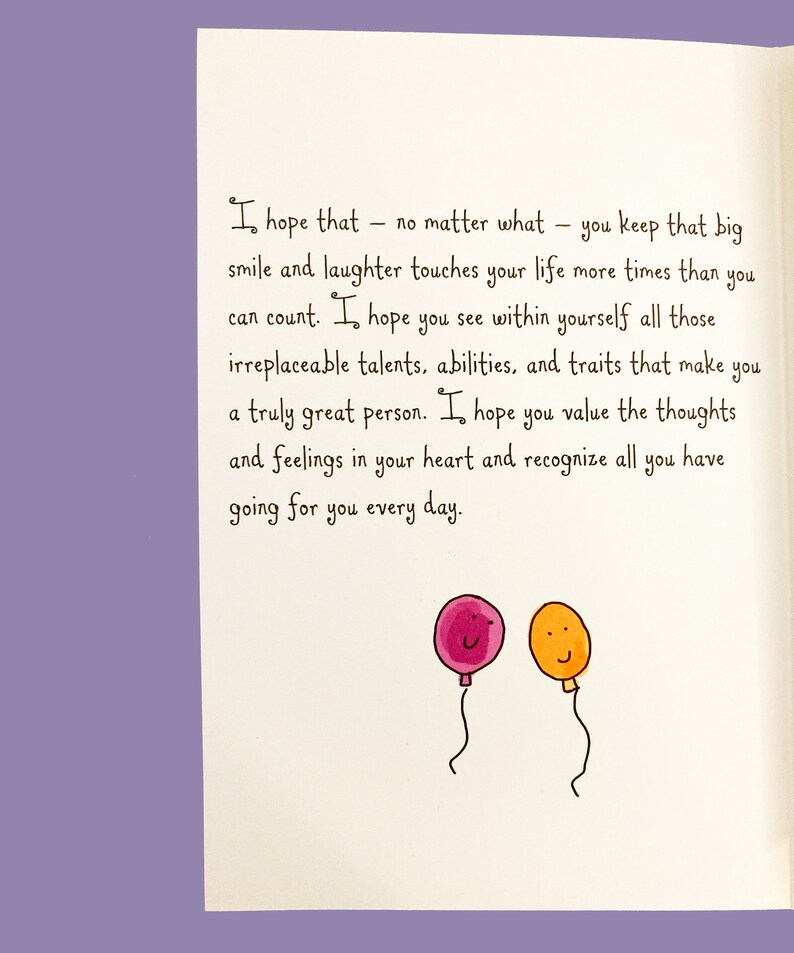 I hope that – no matter what – you keep that big
smile and laughter touches your life more times than you
can count. I hope you see within yourself all those
irreplaceable talents, abilities, and traits that make you
a truly great person. I hope you value the thoughts
and feelings in your heart and recognize all you have
going for you every day.